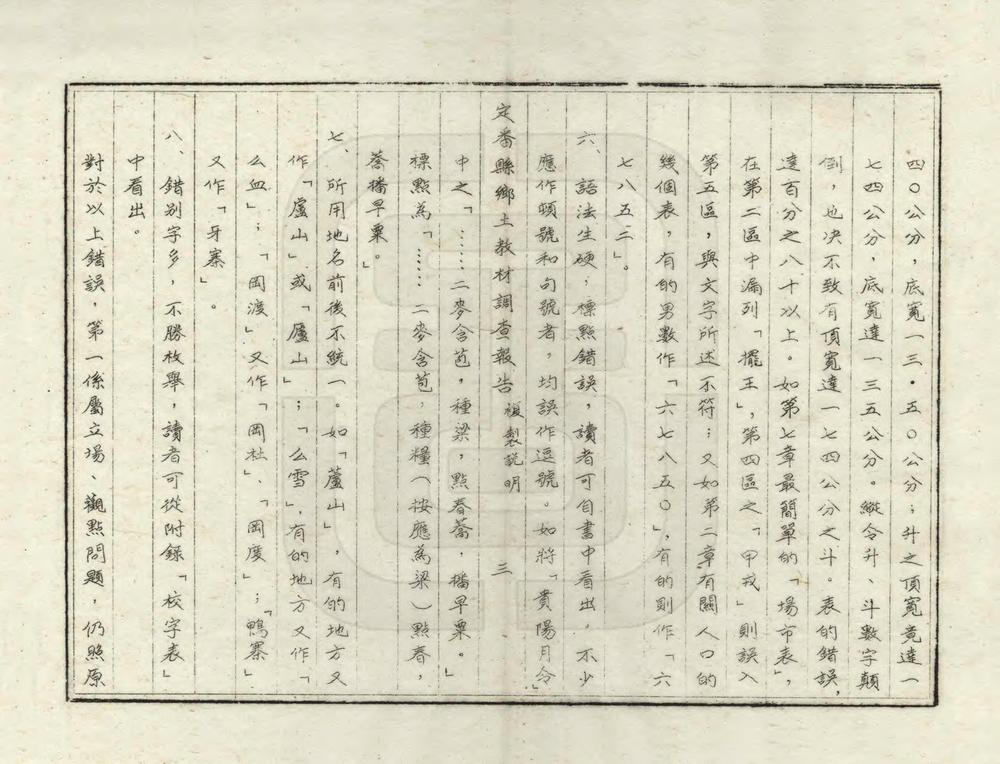 四〇公分，底寬一三·五〇公分；升之頂寬竟達一
七四公分，底寬達一三五公分。縱令升、斗數字顛
倒，也决不致有頂寬達一七四公分之斗。表的錯誤，
達百分之八十以上。如第七章最簡單的「場市表」，
在第二區中漏列「擺王」，第四區之「甲戎」則誤入
第五區，與文字所述不符；又如第二章有關人口的
幾個表，有的男數作「六七八五〇」，有的則作「六
七八五二」。
六、語法生硬，標點錯誤，讀者可自書中看出，不少
應作頓號和句號者，均誤作逗號。如將「貴陽月令」
定番縣鄉土教材調查報告 複製説明 三
中之「……二麥含苞，種粱，點春蕎，播早粟。」
標點為「……二麥含苞，種糧（按應為粱）點春，
蕎播早粟。」
七、所用地名前後不統一。如「蘆山」，有的地方又
作「盧山」或「廬山」；「么雪」，有的地方又作「
么血」；「岡渡」又作「岡杜」、「岡度」；「鴨寨」
又作「牙寨」。
八、錯别字多，不勝枚舉，讀者可從附録「校字表」
中看出。
對於以上錯誤，第一係屬立場、觀點問題，仍照原